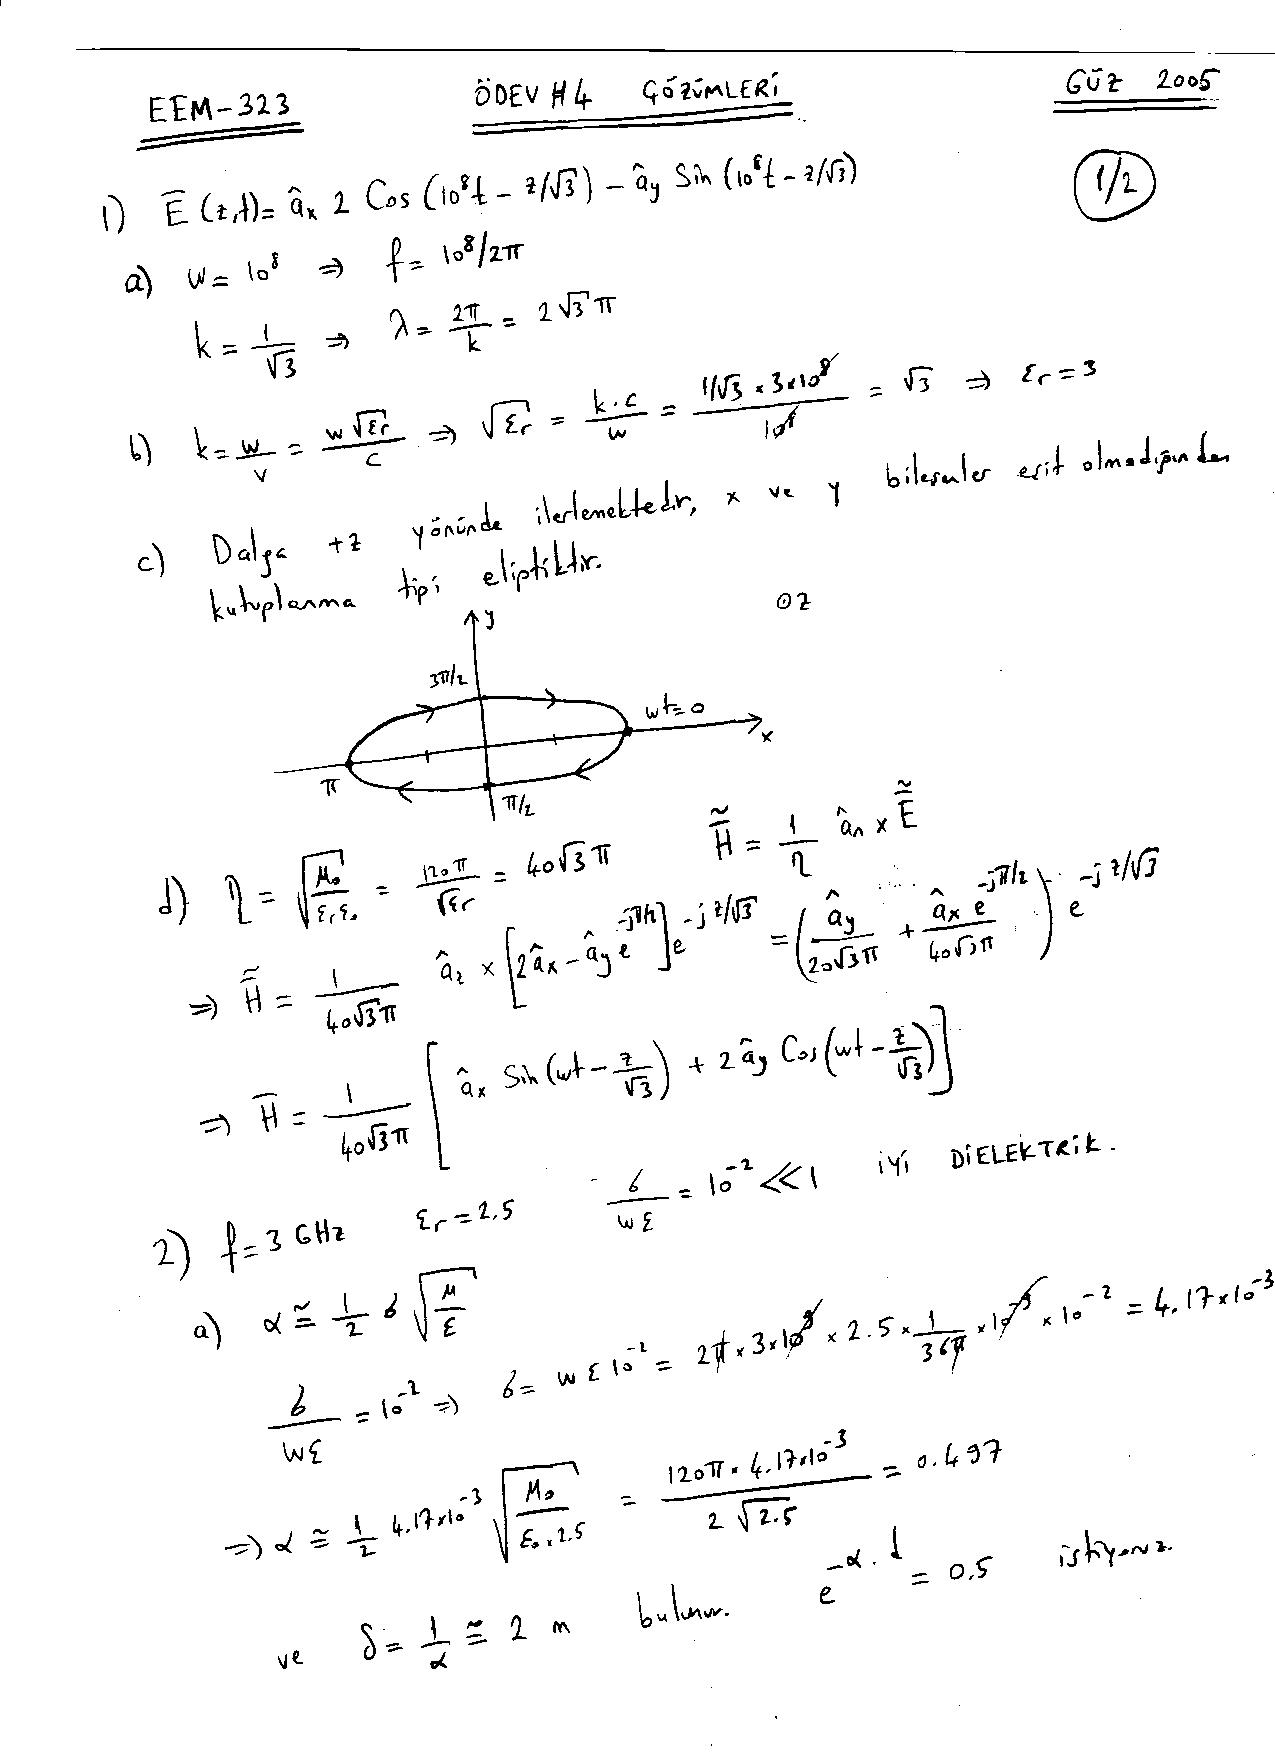 EEM-323 ÖDEV #4 ÇÖZÜMLERİ GÜZ 2005
1/2
1) E̅(z,t) = âx 2 Cos(10⁸t - z/√3) - ây Sin(10⁸t - z/√3)
a) w = 10⁸ ⇒ f = 10⁸/2π
k = 1/√3 ⇒ λ = 2π/k = 2√3 π
b) k = w/v = w√εr/c ⇒ √εr = k.c/w = 1/√3 × 3×10⁸/10⁸ = √3 ⇒ εr = 3
c) Dalga +z yönünde ilerlemektedir, x ve y bileşenler eşit olmadığından
kutuplanma tipi eliptiktir.
⊙z
y
3π/2
wt=0
x
π
π/2
d) η = √(μ₀/εrε₀) = 120π/√εr = 40√3 π H̃ = 1/η ân × Ẽ
⇒ H̃ = 1/40√3π âz × [2âx - ây e^-jπ/2] e^-jz/√3 = (ây/20√3π + âx e^-jπ/2/40√3π) e^-jz/√3
⇒ H̅ = 1/40√3π [âx Sin(wt - z/√3) + 2ây Cos(wt - z/√3)]
2) f = 3 GHz εr = 2.5 σ/wε = 10⁻² ≪ 1 iyi DİELEKTRİK.
a) α ≅ 1/2 σ √(μ/ε)
σ/wε = 10⁻² ⇒ σ = wε10⁻² = 2π × 3×10⁹ × 2.5 × 1/36π × 10⁻⁹ × 10⁻² = 4.17×10⁻³
⇒ α ≅ 1/2 4.17×10⁻³ √(μ₀/ε₀×2.5) = 120π × 4.17×10⁻³/2√2.5 = 0.497
ve δ = 1/α ≅ 2 m bulunur. e^-α.d = 0.5 istiyoruz.